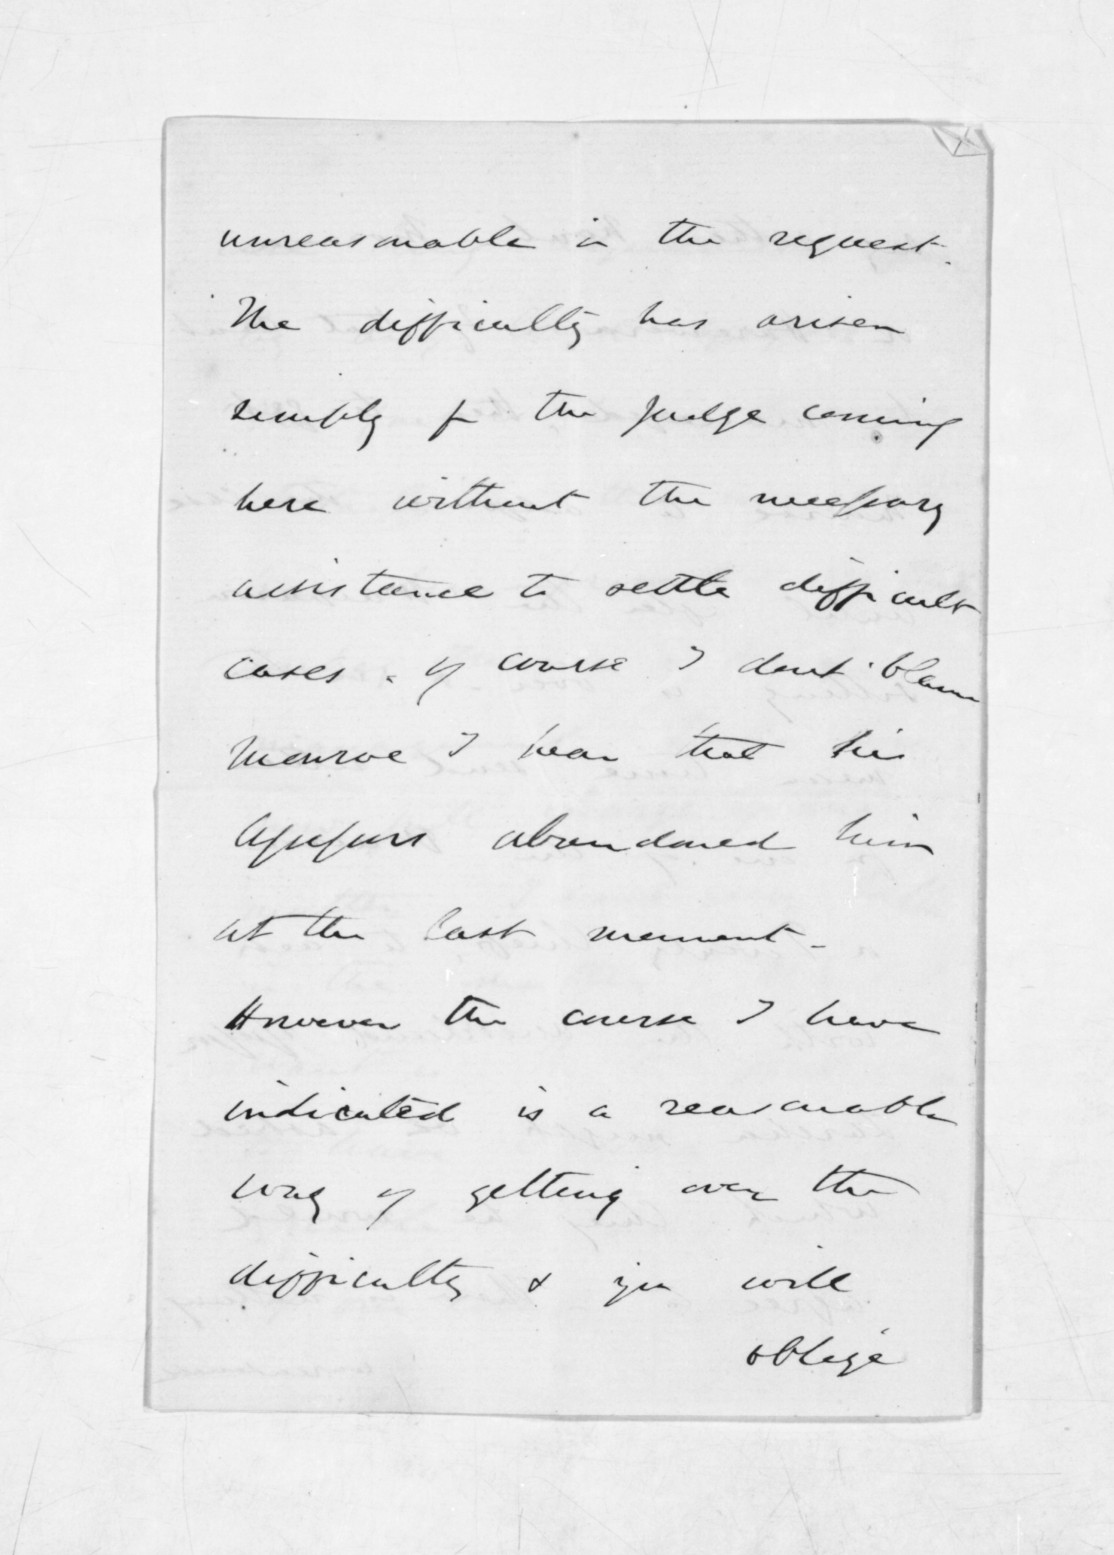 unreasonable in the request.
The difficulty has arisen
simply fr the Judge coming
here without the necessary
assistance to settle difficult
cases. Of course I dont blame
Monroe I hear that his
Assessors abandoned him
at the last moment -
However the course I have
indicated is a reasonable
way of getting over the
difficulty & you will
oblige